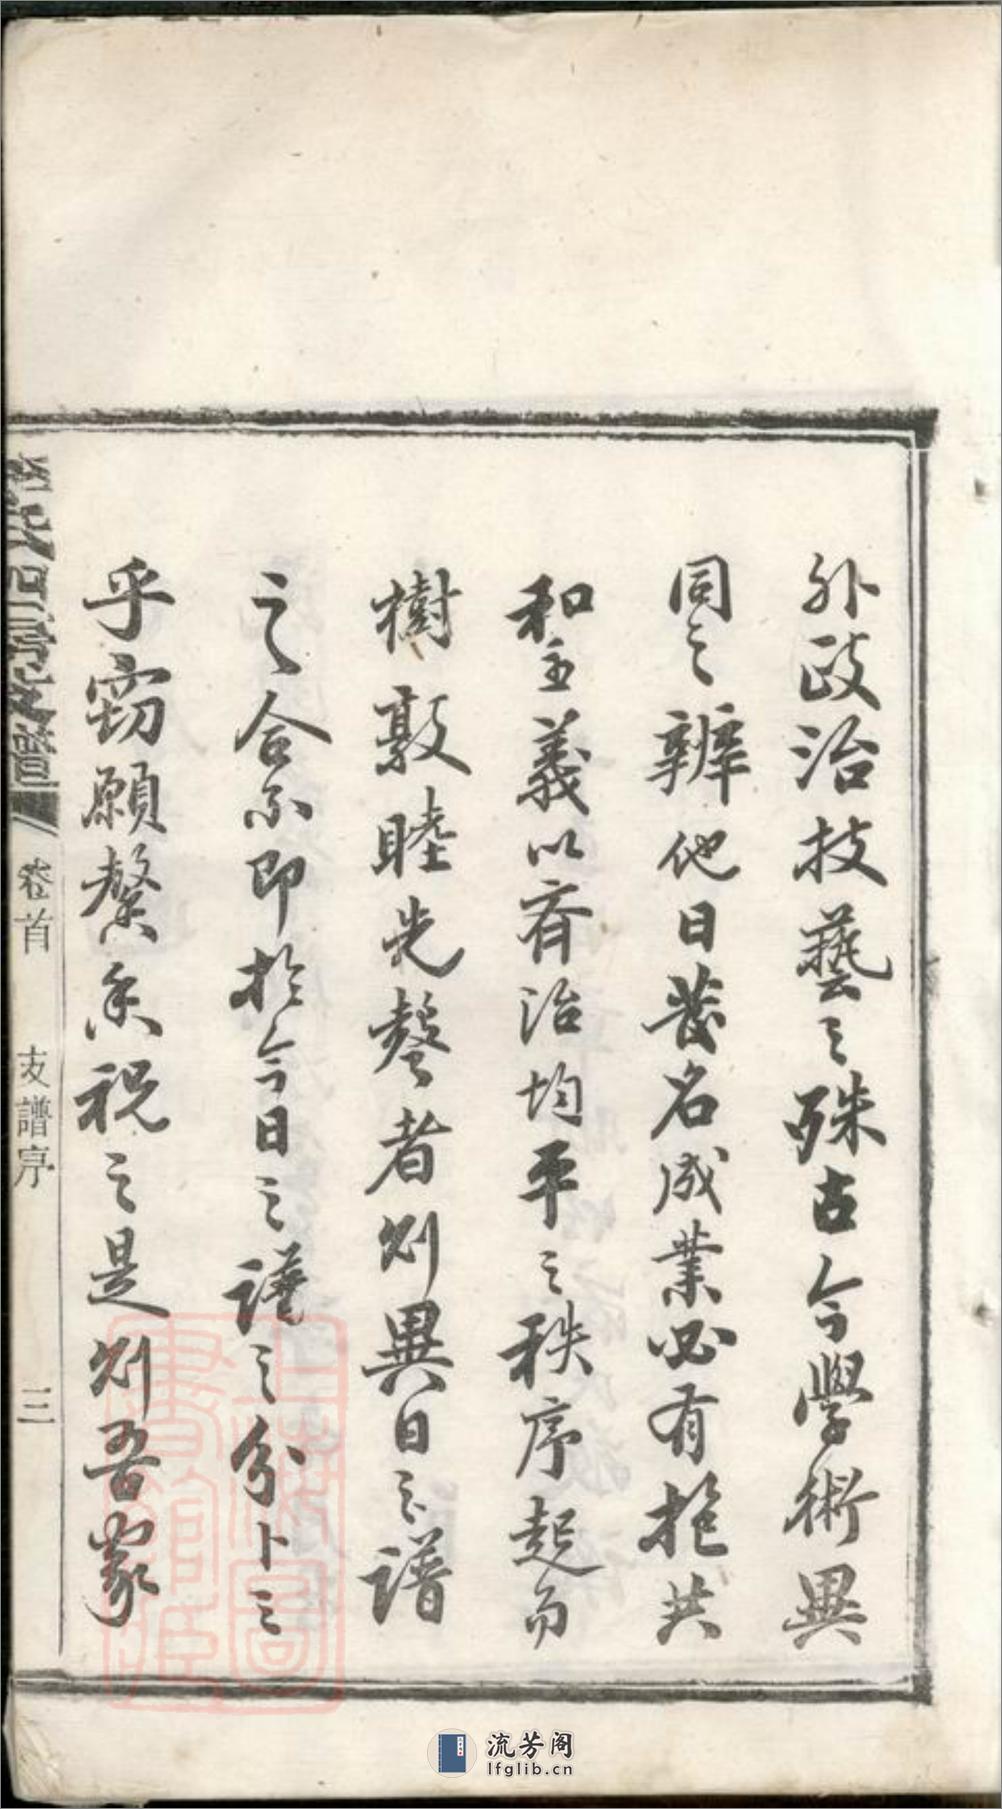 外政治技藝之殊古今學術異
同之辨他日蜚名成業必有抱共
和主義以齊治均平之秩序起而
樹敦睦先聲者則異日之譜
之合不即於今日之譜之分卜之
乎竊願馨香祝之是則吾家
四房支譜
卷首
支譜序
三
上海圖書館藏
流芳阁
lfglib.cn